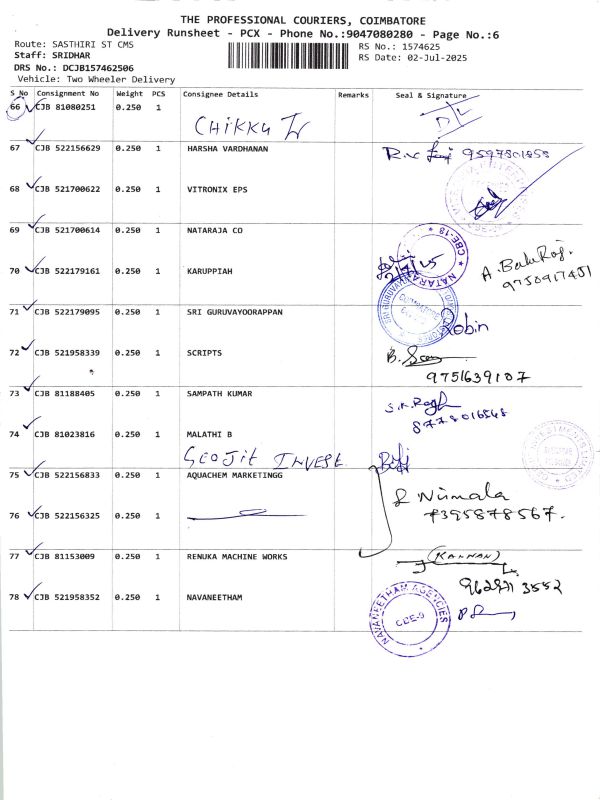 THE PROFESSIONAL COURIERS, COIMBATORE
Delivery Runsheet - PCX - Phone No.:9047080280 - Page No.:6
Route: SASTHIRI ST CMS
RS No.: 1574625
Staff: SRIDHAR
RS Date: 02-Jul-2025
DRS No.: DCJB157462506
Vehicle: Two Wheeler Delivery
S No Consignment No Weight PCS Consignee Details Remarks Seal & Signature
66 CJB 81080251 0.250 1
CHIKKU
67 CJB 522156629 0.250 1 HARSHA VARDHANAN
68 CJB 521700622 0.250 1 VITRONIX EPS
69 CJB 521700614 0.250 1 NATARAJA CO
CBE-18
70 CJB 522179161 0.250 1 KARUPPIAH
A. Balu Raj
9750917451
71 CJB 522179095 0.250 1 SRI GURUVAYOORAPPAN
Robin
72 CJB 521958339 0.250 1 SCRIPTS
9751639107
73 CJB 81188405 0.250 1 SAMPATH KUMAR
74 CJB 81023816 0.250 1 MALATHI B
GEOJIT INVEST
75 CJB 522156833 0.250 1 AQUACHEM MARKETINGG
Nirmala
7395878567.
76 CJB 522156325 0.250 1
77 CJB 81153009 0.250 1 RENUKA MACHINE WORKS
(KANNAN)
78 CJB 521958352 0.250 1 NAVANEETHAM
NAVANEETHAM AGENCIES
CBE-9